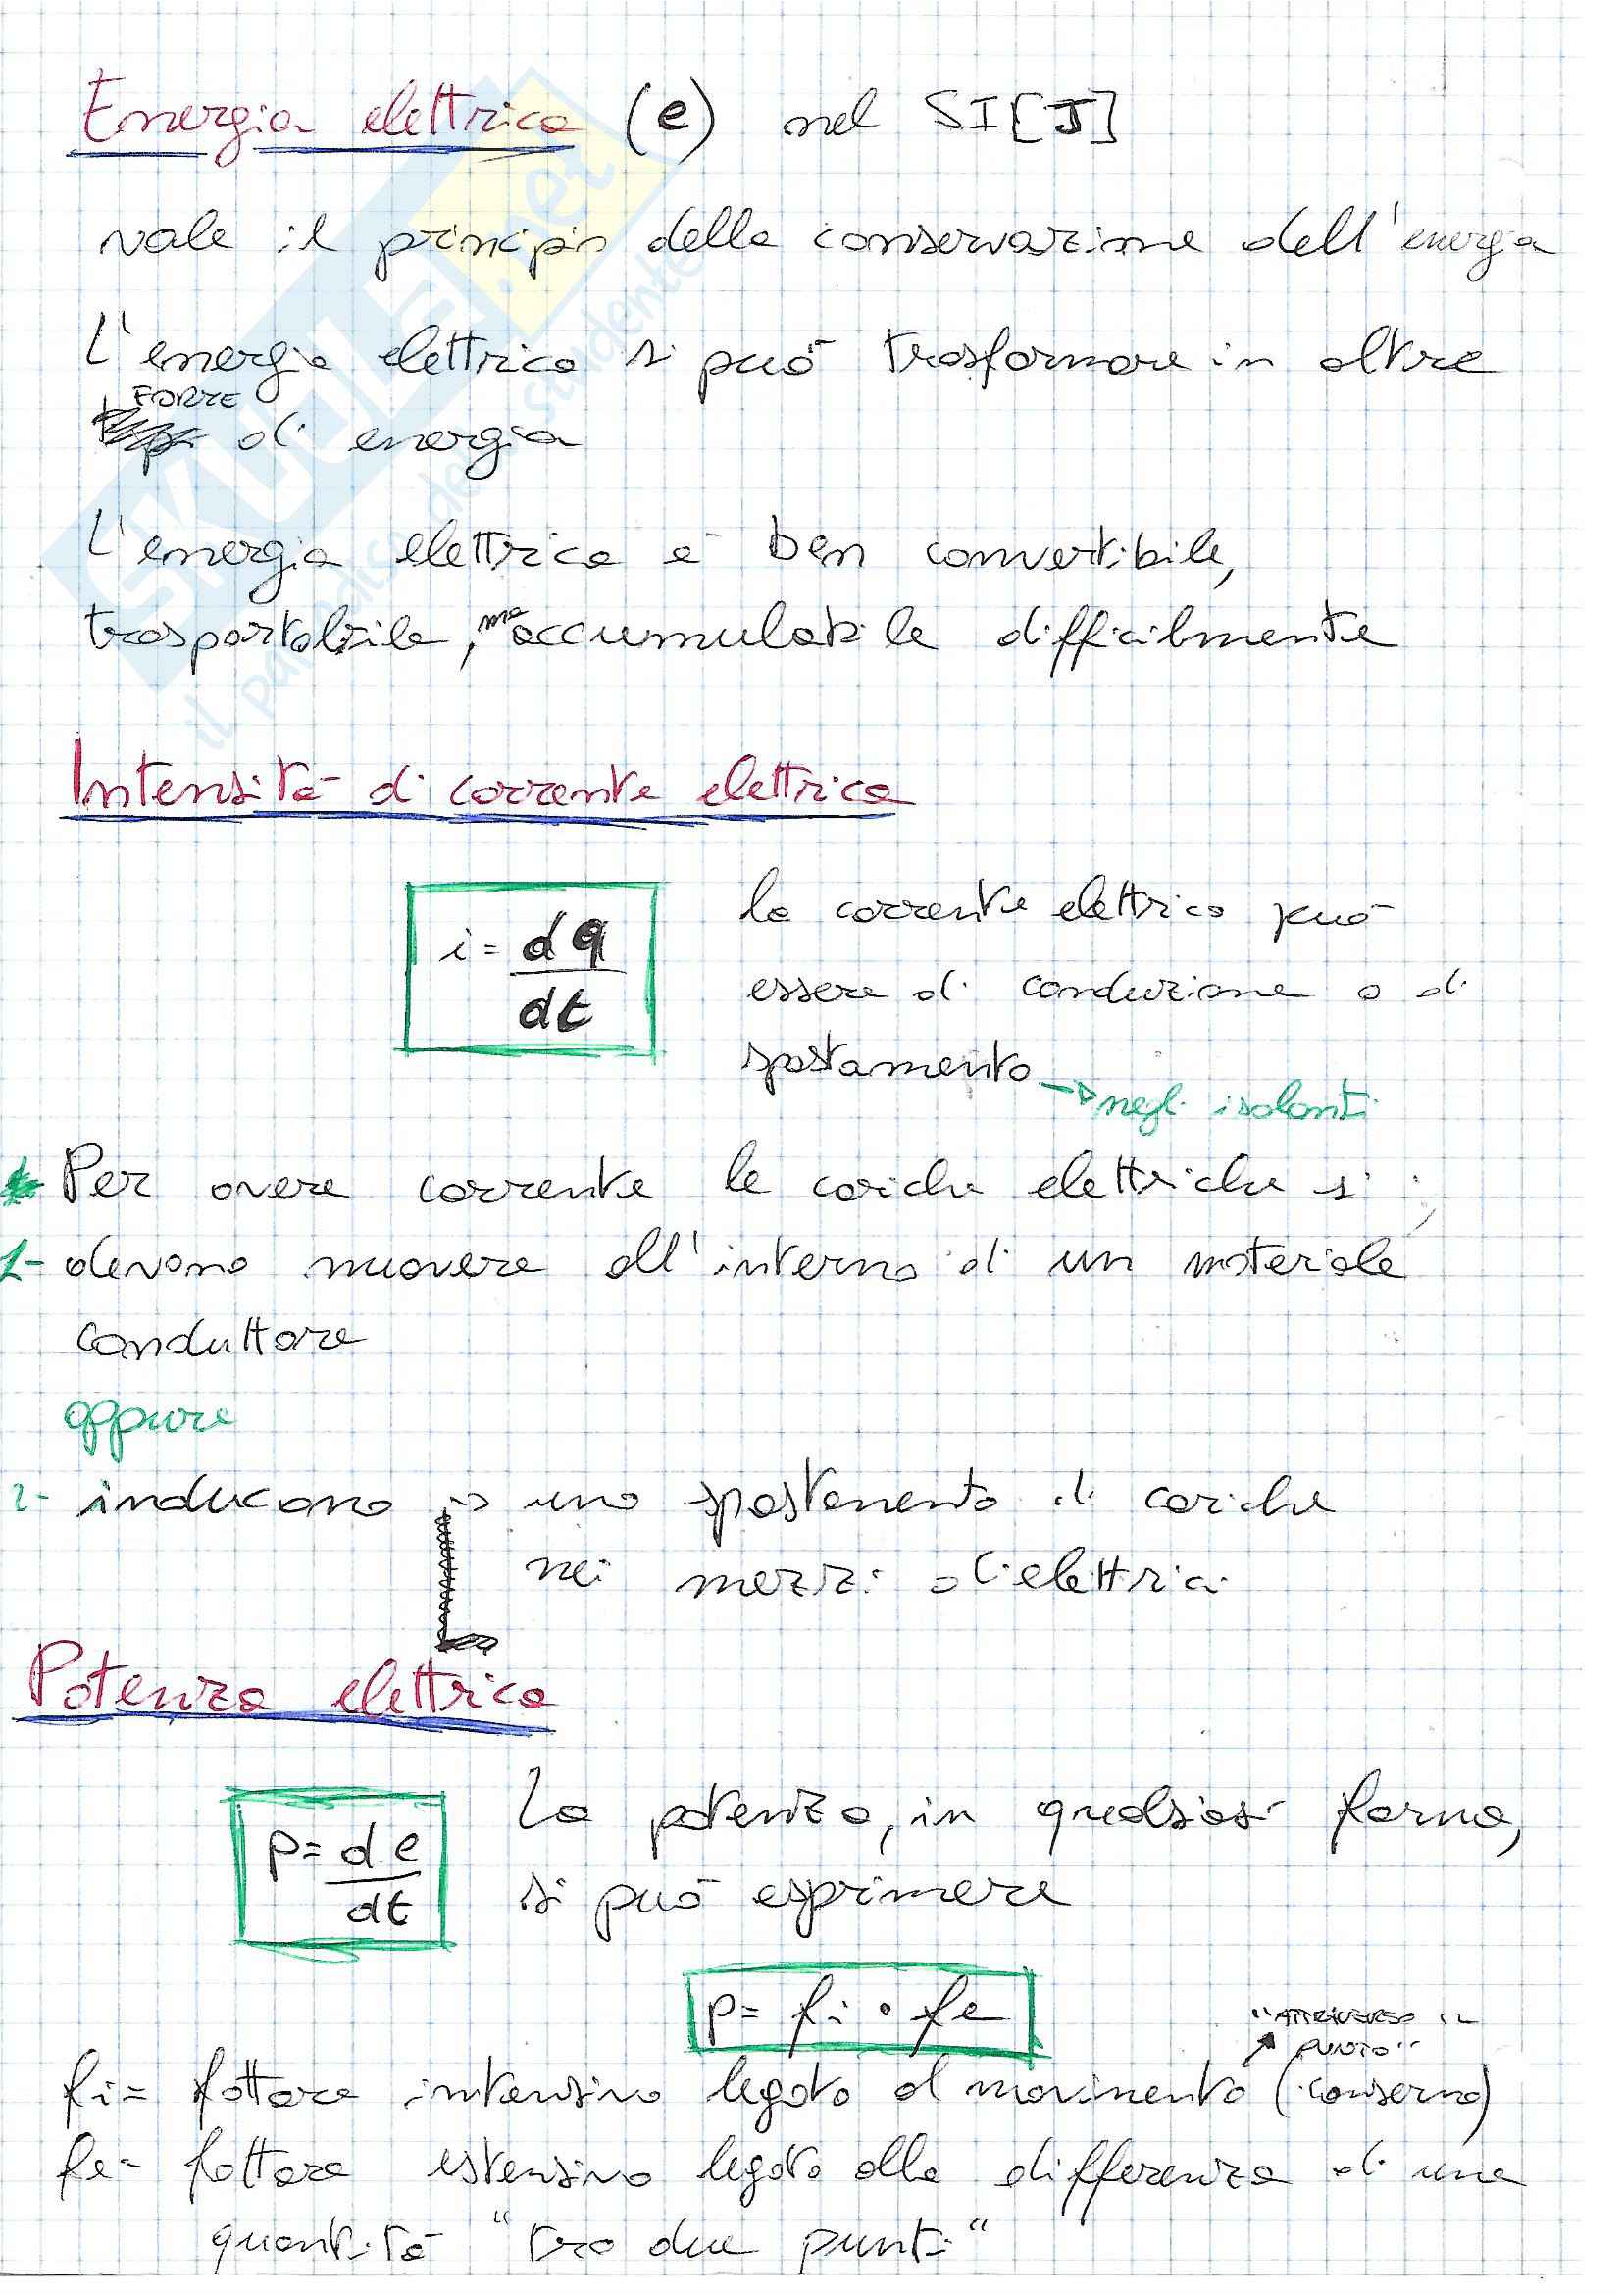 Energia elettrica (e) nel SI [J]
vale il principio della conservazione dell'energia
L'energia elettrica si può trasformare in altre
FORME
di energia
L'energia elettrica è ben convertibile,
trasportabile, ma accumulabile difficilmente
Intensità di corrente elettrica
i = dq
dt
la corrente elettrica può
essere di conduzione o di
spostamento
→ negli isolanti
Per avere corrente le cariche elettriche si
1- devono muovere all'interno di un materiale
conduttore
oppure
2- inducono → uno spostamento di cariche
nei mezzi dielettrici
Potenza elettrica
p = de
dt
La potenza, in qualsiasi forma,
si può esprimere
p = fi · fe
"ATTRAVERSO IL
PUNTO"
fi = fattore intensivo legato al movimento (conserva)
fe = fattore estensivo legato alla differenza di una
quantità "tra due punti"
SKUOLA.net
il paradiso dello studente